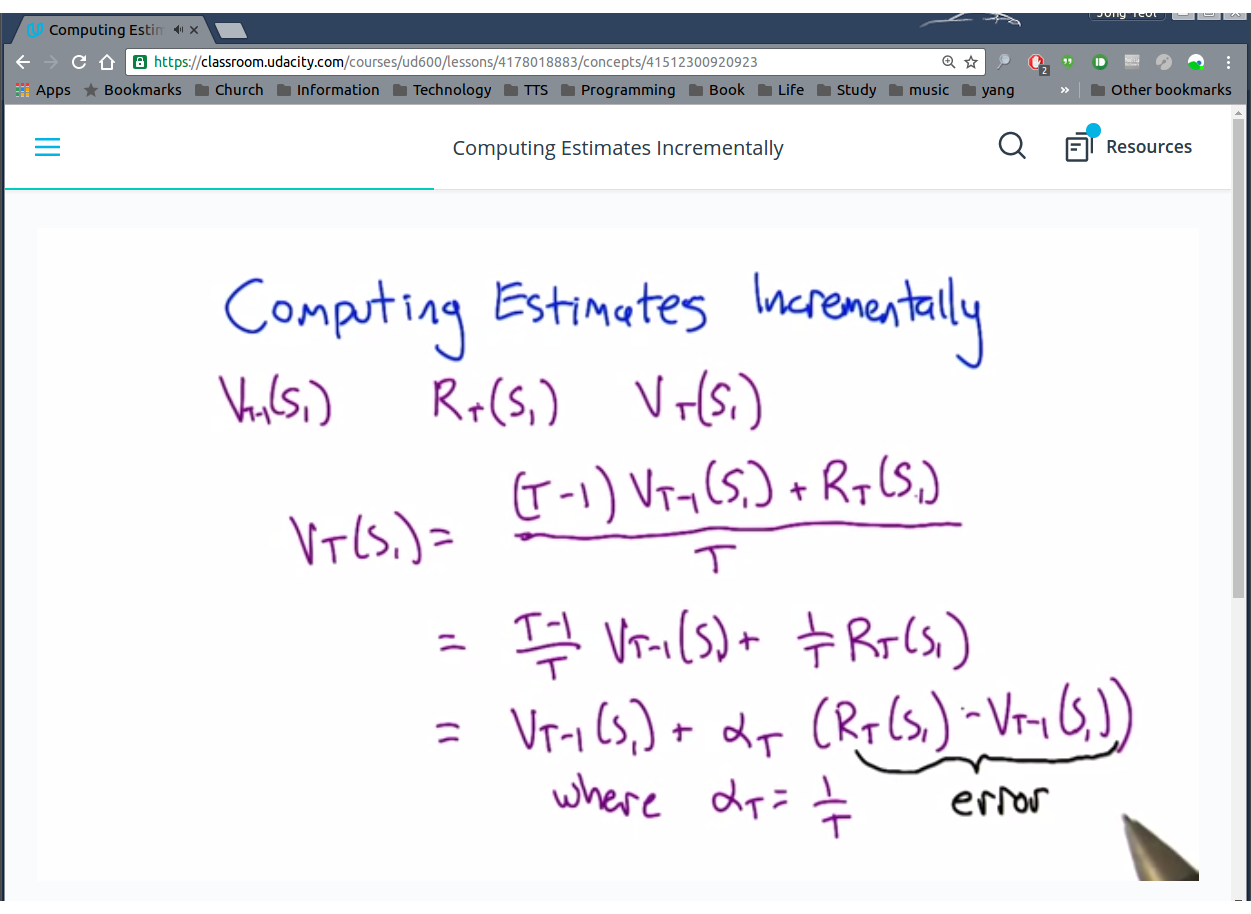 Computing Estim
Jong Yeol
https://classroom.udacity.com/courses/ud600/lessons/4178018883/concepts/41512300920923
2
Apps Bookmarks Church Information Technology TTS Programming Book Life Study music yang » Other bookmarks
Computing Estimates Incrementally
Resources
Computing Estimates Incrementally
V_{T-1}(S_1) R_T(S_1) V_T(S_1)
V_T(S_1) = \frac{(T-1) V_{T-1}(S_1) + R_T(S_1)}{T}
= \frac{T-1}{T} V_{T-1}(S_1) + \frac{1}{T} R_T(S_1)
= V_{T-1}(S_1) + α_T (R_T(S_1) - V_{T-1}(S_1))
where α_T = \frac{1}{T} error